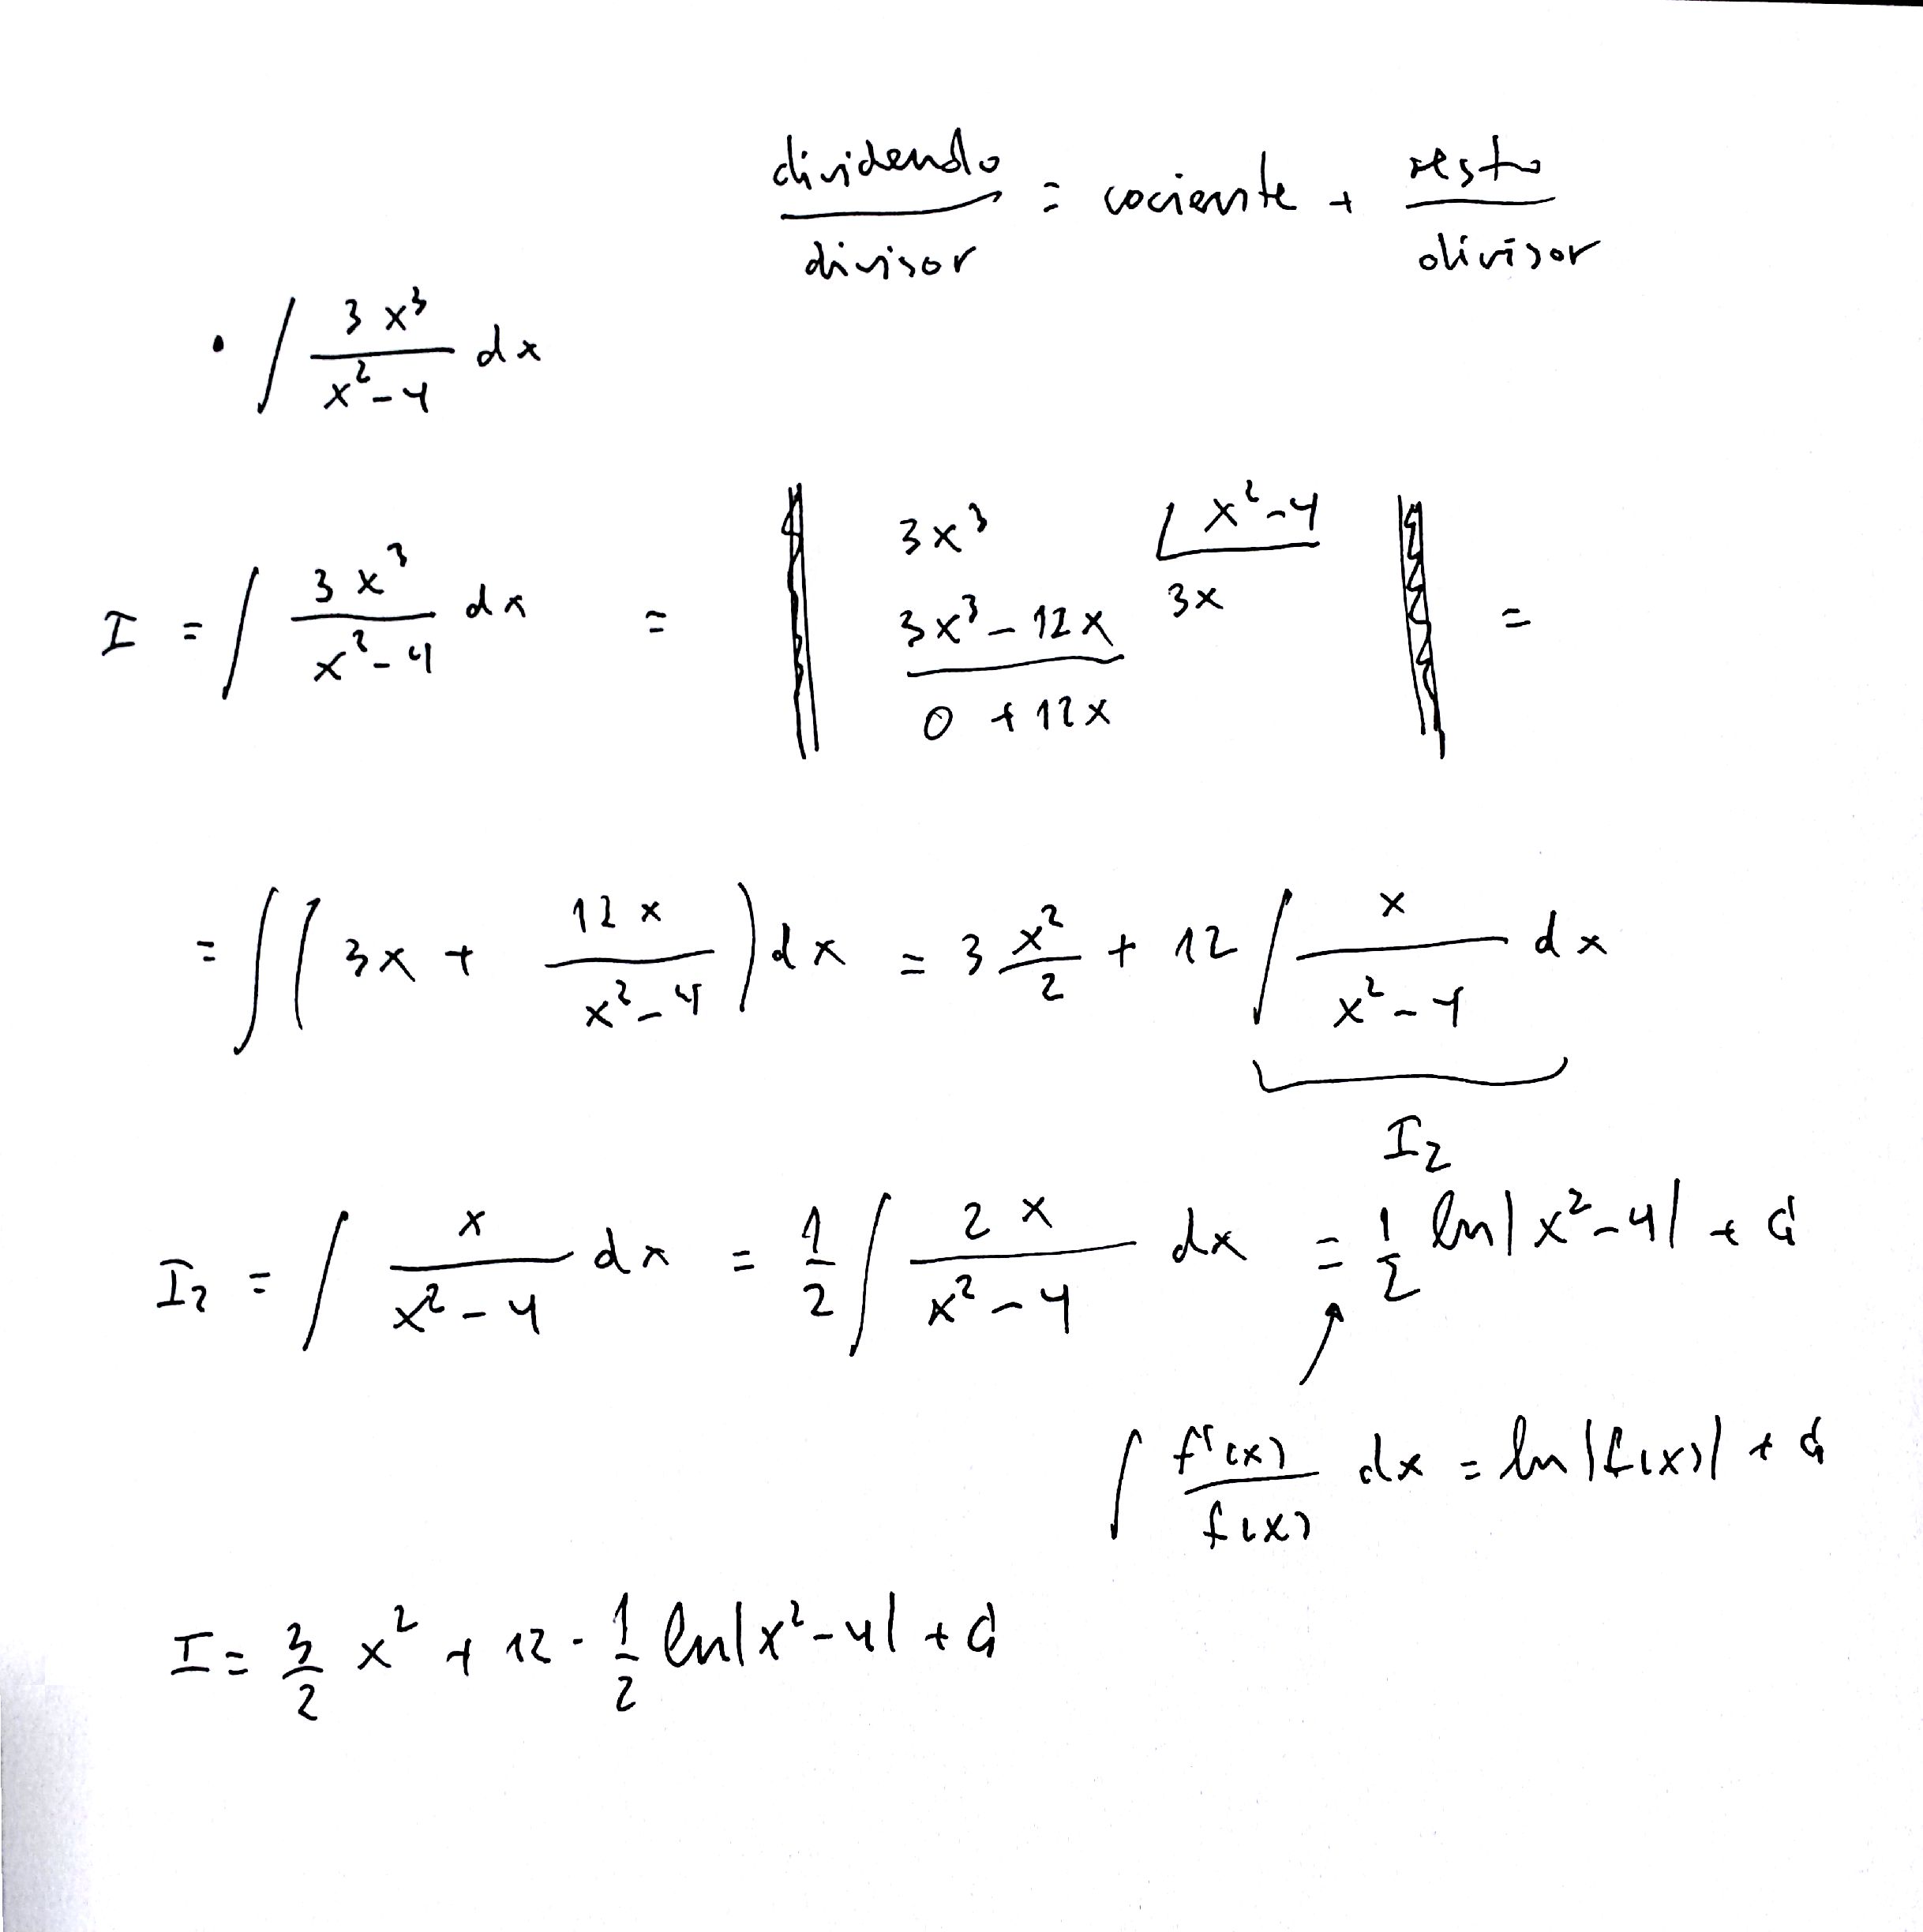 dividendo/divisor = cociente + resto/divisor
• ∫ 3x³/(x²-4) dx
I = ∫ 3x³/(x²-4) dx = || 3x³ |x²-4
3x³-12x 3x
0 +12x || =
= ∫(3x + 12x/(x²-4)) dx = 3 x²/2 + 12 ∫ x/(x²-4) dx
I₂
I₂ = ∫ x/(x²-4) dx = 1/2 ∫ 2x/(x²-4) dx = 1/2 ln|x²-4| + C
∫ f'(x)/f(x) dx = ln|f(x)| + C
I = 3/2 x² + 12 · 1/2 ln|x²-4| + C